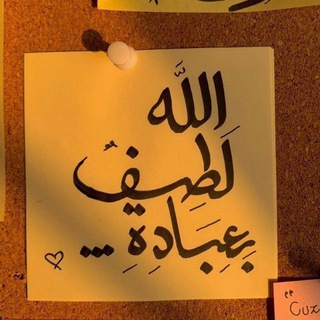 اللَّه
لَطِيفُ
بِعِبَادِهِ ...
"Cux